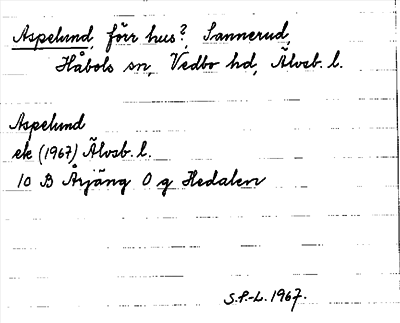 Aspelund, förr hus?, Sannerud,
Håbols sn, Vedbo hd, Älvsb. l.
Aspelund
ek (1967) Älvsb. l.
10 B Årjäng O g Hedalen
S.F.-L. 1967.